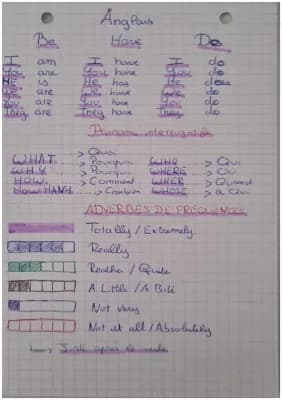 Anglais
Be Have Do
I am I have I do
You are You have You do
He is He has He does
We are We have We do
You are You have You do
They are They have They do
Pronoms interrogatifs
WHAT > Quoi
WHY > Pourquoi WHO > Qui
HOW > Comment WHERE > Où
HOW MANY > Combien WHOSE > à Qui
ADVERBES DE FREQUENCES
Totally / Extremely
Really
Quite
A Little / A Bit
Not very
Not at all / Absolutely